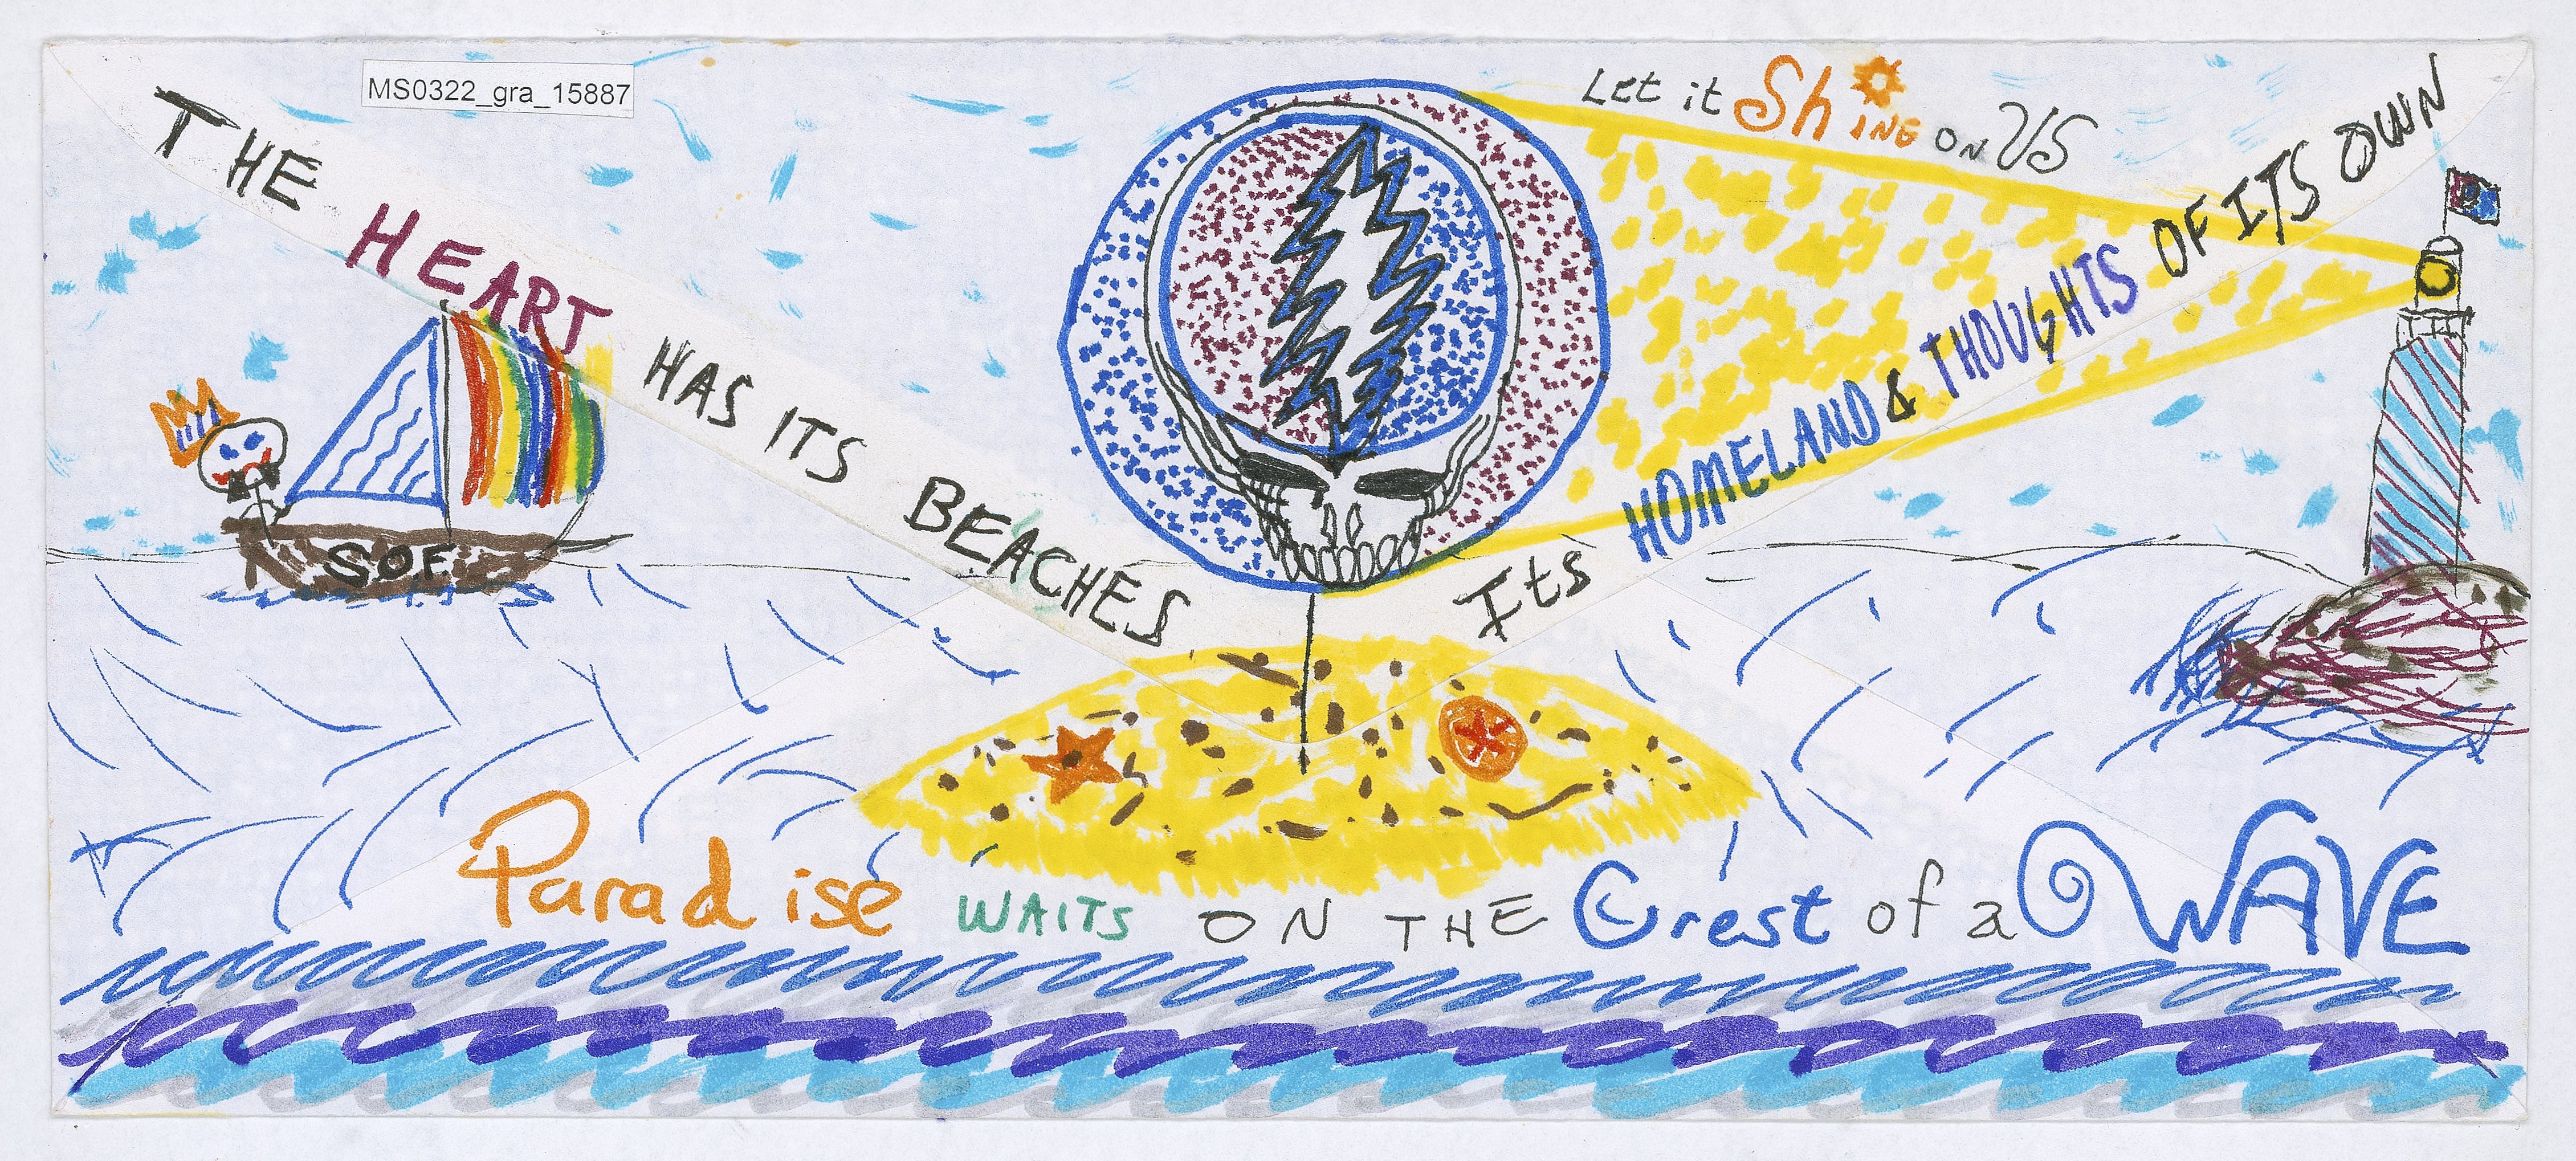 MS0322_gra_15887
Let it Shine on US
THE HEART HAS ITS BEACHES
Its HOMELAND & THOUGHTS OF ITS OWN
S.O.F.
Paradise WAITS ON THE Crest of a WAVE